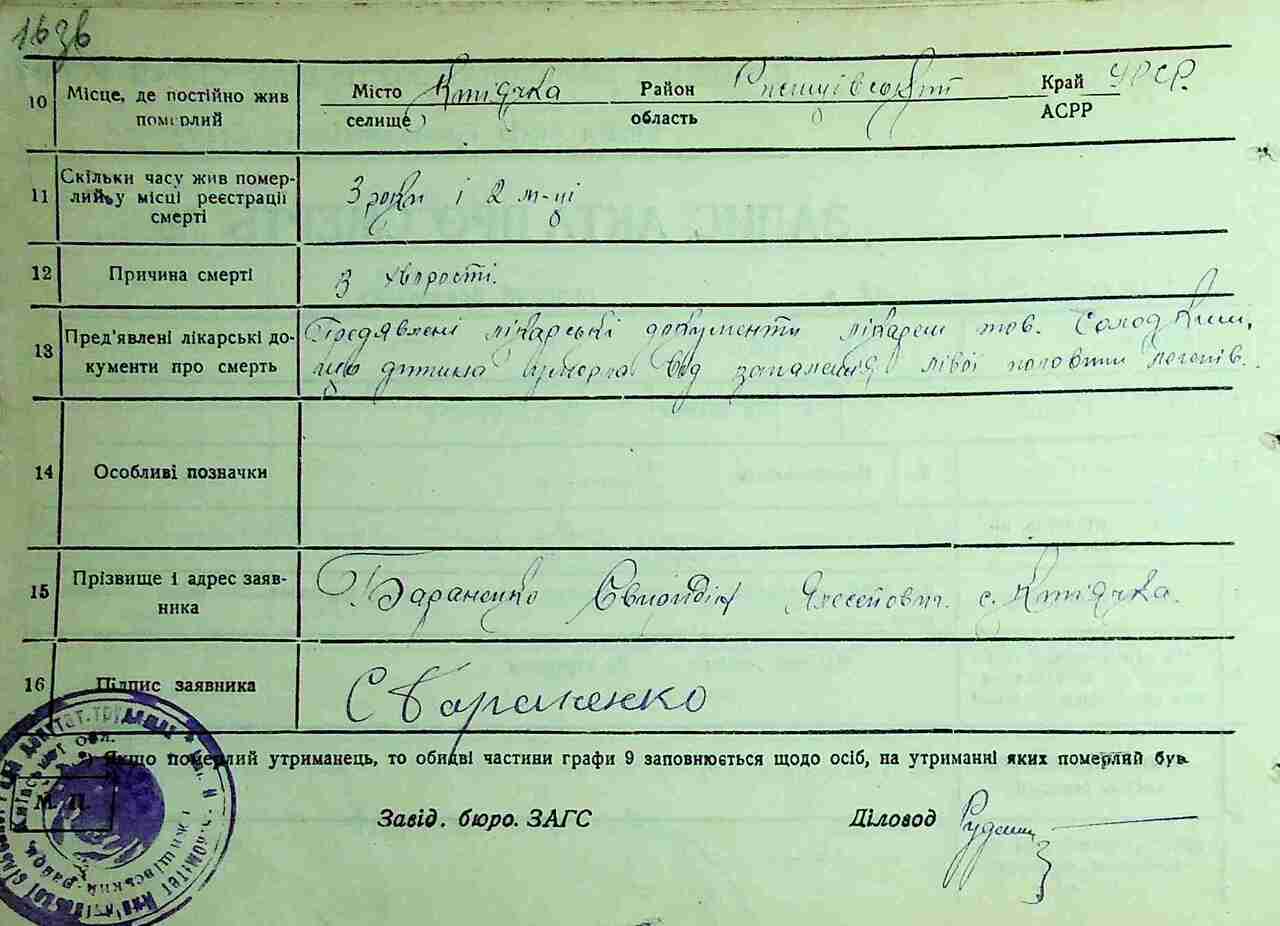 163б
10 Місце, де постійно жив померлий Місто селище Кмітчка Район область Край АСРР УРСР.
11 Скільки часу жив померлий у місці реєстрації смерті 3 роки і 2 м-ці
12 Причина смерті З хворости.
13 Пред'явлені лікарські документи про смерть Предявлені лікарські документи лікарем тов. Солодким,
що дитина умерла від запалення лівої половини легенів.
14 Особливі позначки
15 Прізвище і адрес заявника Бараненко с.
16 Підпис заявника С Бараненко
Якщо померлий утриманець, то обидві частини графи 9 заповнюється щодо осіб, на утриманні яких померлий був
М. П.
Завід. бюро. ЗАГС Діловод